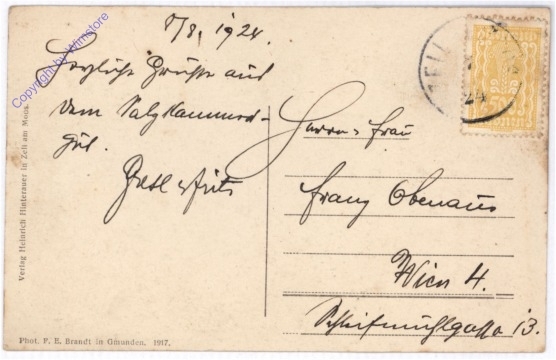 7/8. 1924.
Herzliche Grüße aus
dem Salzkammer-
gut.
Gretl & Fritz
Herrn & Frau
Franz Obenaus
Wien 4.
Schleifmühlgasse 13.
ZELL
24
Verlag Heinrich Hinterauer in Zell am Moos.
Phot. F. E. Brandt in Gmunden. 1917.
Copyright by Wimstore